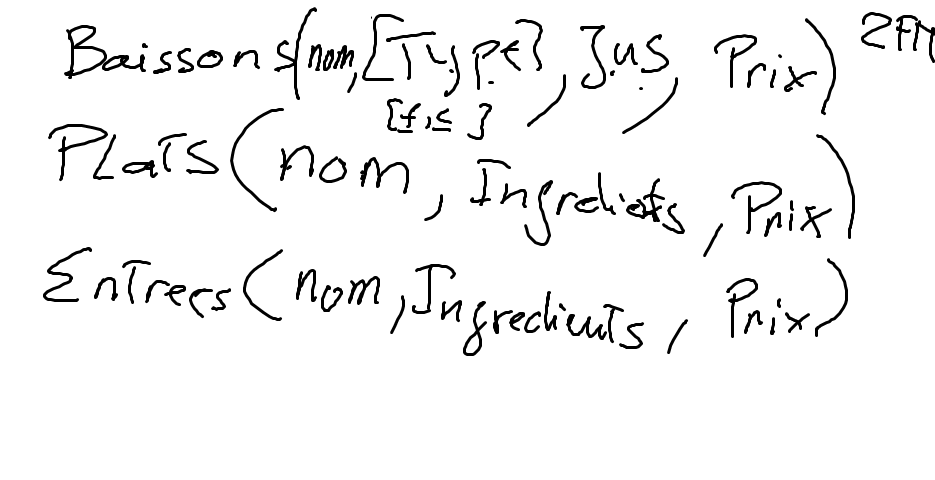 Boissons(nom, [Type}, Jus, Prix) 2FM
[f,s]
PLaTS(nom, Ingredients, Prix)
EnTrees(nom, Ingredients, Prix)